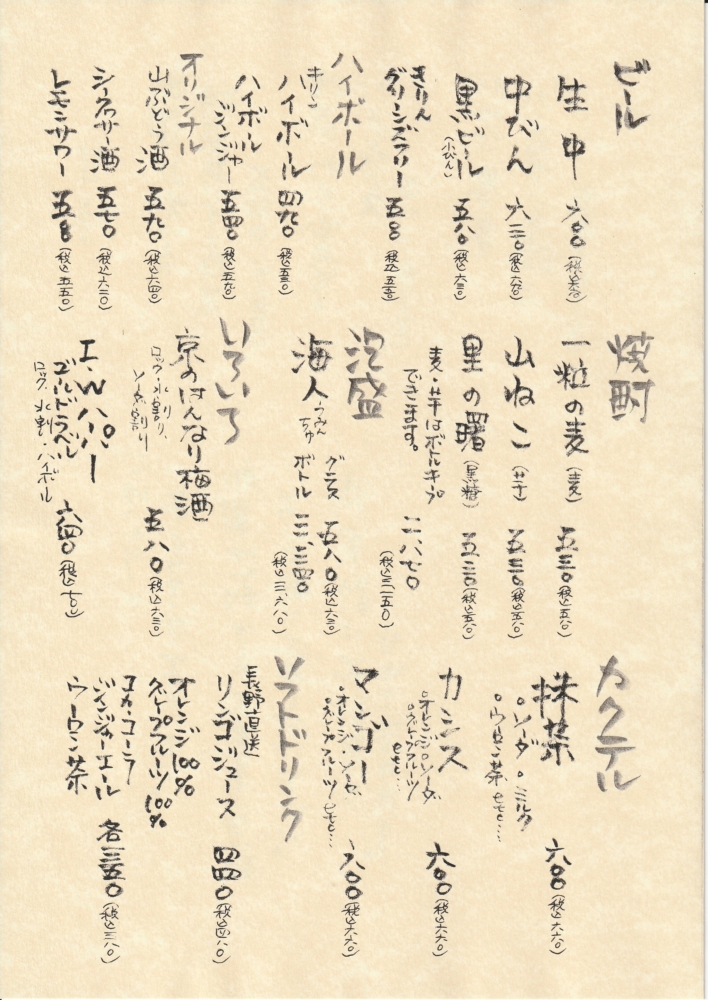 ビール
生中 六〇〇(税込六六〇)
中びん 六三〇(税込六九〇)
黒ビール(小びん) 五八〇(税込六三〇)
きりん
グリーンズフリー 五〇〇(税込五五〇)
ハイボール
きりん
ハイボール 四九〇(税込五三〇)
ハイボール
ジンジャー 五四〇(税込五九〇)
オリジナル
山ぶどう酒 五九〇(税込六四〇)
シークワサー酒 五七〇(税込六二〇)
レモンサワー 五〇〇(税込五五〇)
焼酎
一粒の麦(麦) 五三〇(税込五八〇)
山ねこ(芋) 五三〇(税込五八〇)
里の曙(黒糖) 五三〇(税込五八〇)
麦・芋はボトルキープ
できます。 二、八七〇
(税込三一五〇)
泡盛
海人 うみんちゅ
グラス 五八〇(税込六三〇)
ボトル 三、三四〇
(税込三、六八〇)
いろいろ
京のはんなり梅酒
ロック、水割り、
ソーダ割り 五八〇(税込六三〇)
I.Wハーパー
ゴールドラベル 六四〇(税込七〇〇)
ロック、水割・ハイボール
カクテル
抹茶 六〇〇(税込六六〇)
。ソーダ。ミルク
。ウーロン茶etc…
カシス 六〇〇(税込六六〇)
。オレンジ。ソーダ
。グレープフルーツ
etc…
マンゴー 六〇〇(税込六六〇)
。オレンジ・ソーダ
。グレープフルーツetc…
ソフトドリンク
長野直送
リンゴジュース 四四〇(税込四八〇)
オレンジ100%
グレープフルーツ100%
コカ・コーラ
ジンジャーエール 各三五〇(税込三八〇)
ウーロン茶